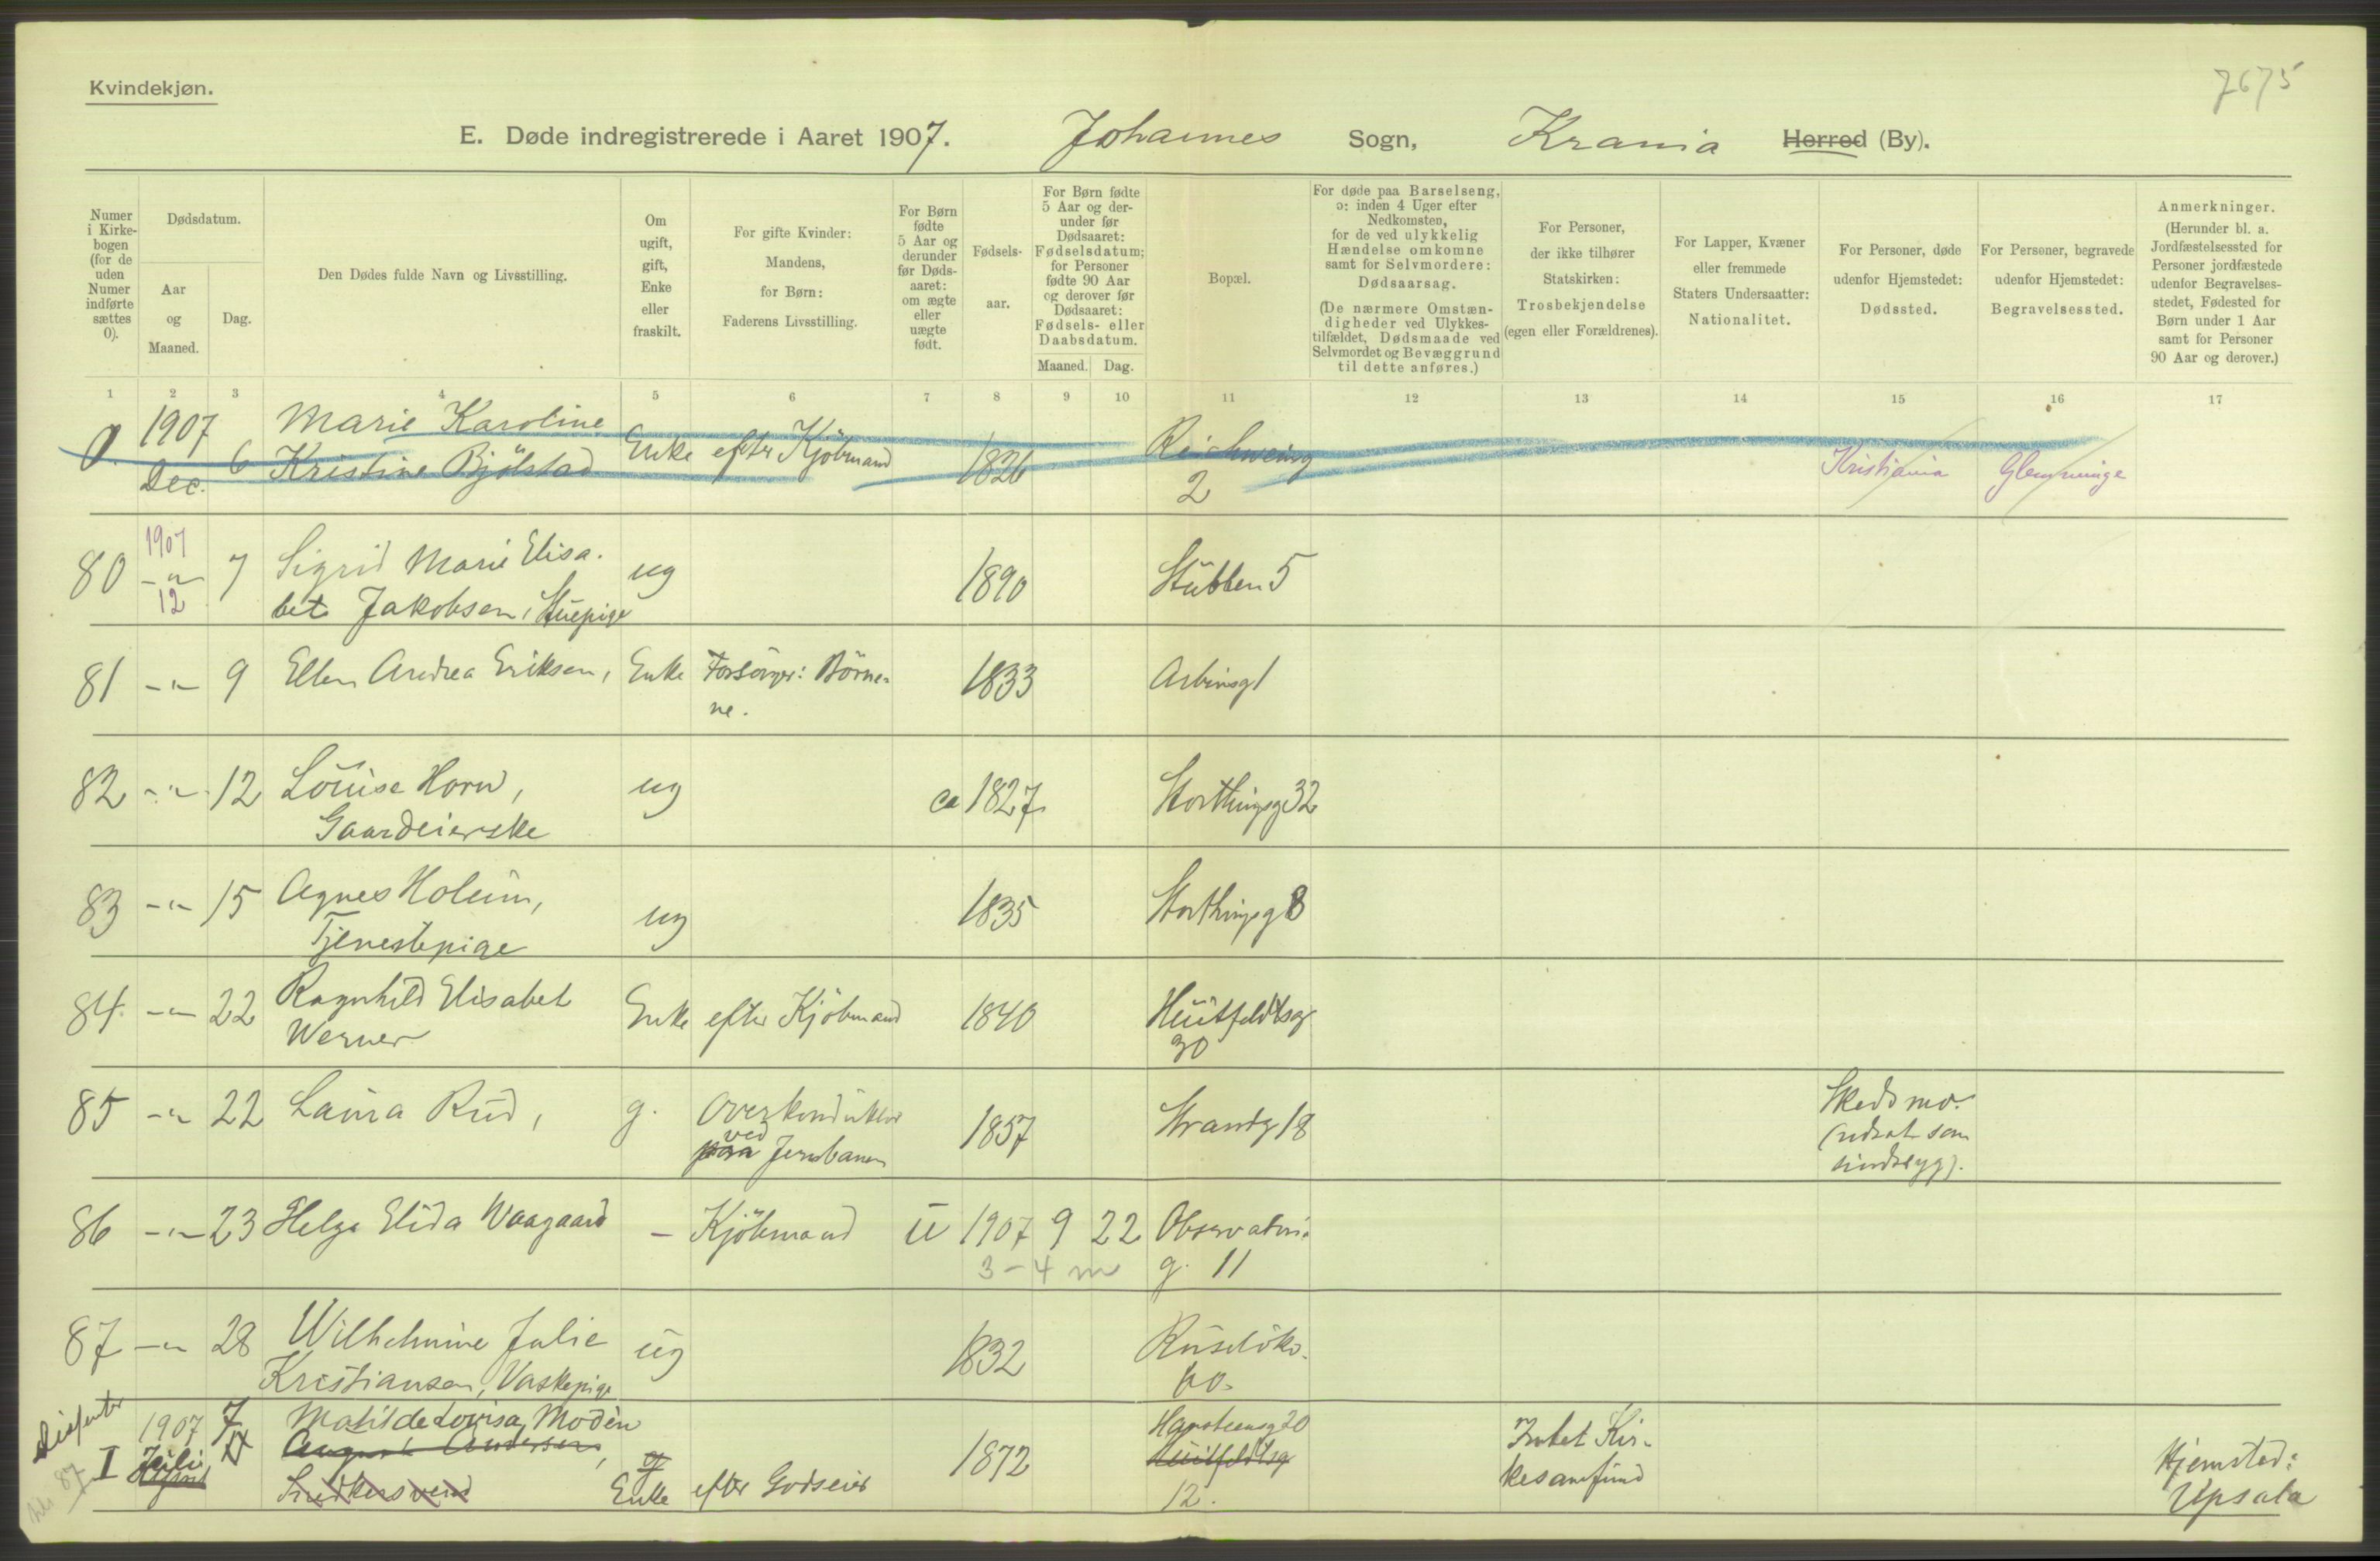 Kvindekjøn.
7675
E. Døde indregistrerede i Aaret 1907. Johannes Sogn, Krania Herred (By).
Numer i Kirkebogen (for de uden Numer indførte sættes 0).
Dødsdatum.
Aar og Maaned.
Dag.
Den Dødes fulde Navn og Livsstilling.
Om ugift, gift, Enke eller fraskilt.
For gifte Kvinder: Mandens, for Børn: Faderens Livsstilling.
For Børn fødte 5 Aar og derunder før Dødsaaret: om ægte eller uægte født.
Fødselsaar.
For Børn fødte 5 Aar og derunder før Dødsaaret: Fødselsdatum; for Personer fødte 90 Aar og derover før Dødsaaret: Fødsels- eller Daabsdatum.
Maaned. Dag.
Bopæl.
For døde paa Barselseng, ɔ: inden 4 Uger efter Nedkomsten, for de ved ulykkelig Hændelse omkomne samt for Selvmordere: Dødsaarsag.
(De nærmere Omstændigheder ved Ulykkestilfældet, Dødsmaade ved Selvmordet og Bevæggrund til dette anføres.)
For Personer, der ikke tilhører Statskirken: Trosbekjendelse (egen eller Forældrenes).
For Lapper, Kvæner eller fremmede Staters Undersaatter: Nationalitet.
For Personer, døde udenfor Hjemstedet: Dødssted.
For Personer, begravede udenfor Hjemstedet: Begravelsessted.
Anmerkninger.
(Herunder bl. a. Jordfæstelsessted for Personer jordfæstede udenfor Begravelsesstedet, Fødested for Børn under 1 Aar samt for Personer 90 Aar og derover.)
1 2 3 4 5 6 7 8 9 10 11 12 13 14 15 16 17
0 1907 Dec. 6 Marie Karoline Kristine Bjölstad Enke efter Kjöbmand 1826 Reichweinsg 2 Kristiania Glemminge
80 1907 -"- 12 7 Sigrid Marie Elisabet Jakobsen, Stuepige ug 1890 Stubben 5
81 -"- 9 Ellen Andrea Eriksen, Enke Forsörger: Börnene. 1833 Arbinsg 1
82 -"- 12 Louise Horn, Gaardeierske ug ca 1827 Storthingsg 32
83 -"- 15 Agnes Holum, Tjenestepige ug 1835 Storthingsg 8
84 -"- 22 Ragnhild Elisabet Werner Enke efter Kjöbmand 1840 Huitfeldtsg 30
85 -"- 22 Laura Rud, g. Overkonduktör paa ved Jernbanen 1857 Strandg 18 Skedsmo. (udsat som sindssyg).
86 -"- 23 Helga Elida Waagaard - Kjöbmand u 1907 9 22 Observatorieg. 11
3 - 4 m
87 -"- 28 Wilhelmine Julie Kristiansen, Vaskepige ug 1832 Ruselökv. 60.
Dissenter
I 1907 Juli 7 Matilde Lovisa Modèn August Andersen, Snedkersvend g Enke efter Godseier 1872 Hansteensg 20 Huitfeldtsg 12. Intet Kirkesamfund Hjemsted: Upsala
87